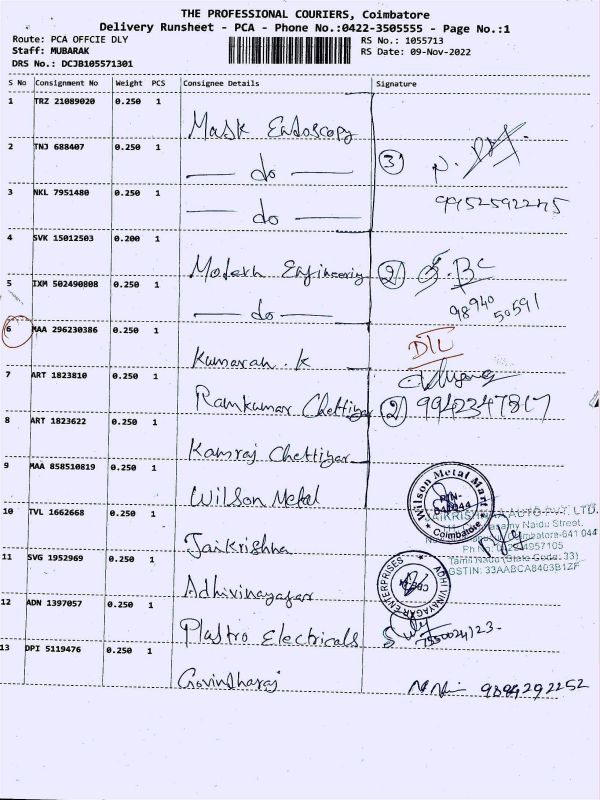 THE PROFESSIONAL COURIERS, Coimbatore
Delivery Runsheet - PCA - Phone No.:0422-3505555 - Page No.:1
Route: PCA OFFCIE DLY
RS No.: 1055713
Staff: MUBARAK
RS Date: 09-Nov-2022
DRS No.: DCJB105571301
S No Consignment No Weight PCS Consignee Details Signature
1 TRZ 21089020 0.250 1 Mask Endoscopy
2 TNJ 688407 0.250 1 do 3
3 NKL 7951480 0.250 1 do
4 SVK 15012503 0.200 1 Modern Engineering 2
5 IXM 502490808 0.250 1 do 98940 50591
6 MAA 296230386 0.250 1 Kumaran. K
7 ART 1823810 0.250 1 Ramkumar Chettiyar 2 9942347817
8 ART 1823622 0.250 1 Kamraj Chettiyar
9 MAA 858510819 0.250 1 Wilson Metal
Wilson Metal Mart
PIN-
Coimbatore
10 TVL 1662668 0.250 1 Jaikrishna
AUTO PVT. LTD.
Naidu Street,
641 044
Tamil Nadu (State Code: 33)
GSTIN: 33AABCA8403B1ZF
11 SVG 1952969 0.250 1 Adhivinayagar
ADHI VINAYAGAR ENTERPRISES
12 ADN 1397057 0.250 1 Plastro Electricals
13 DPI 5119476 0.250 1 Govindharaj 9894292252